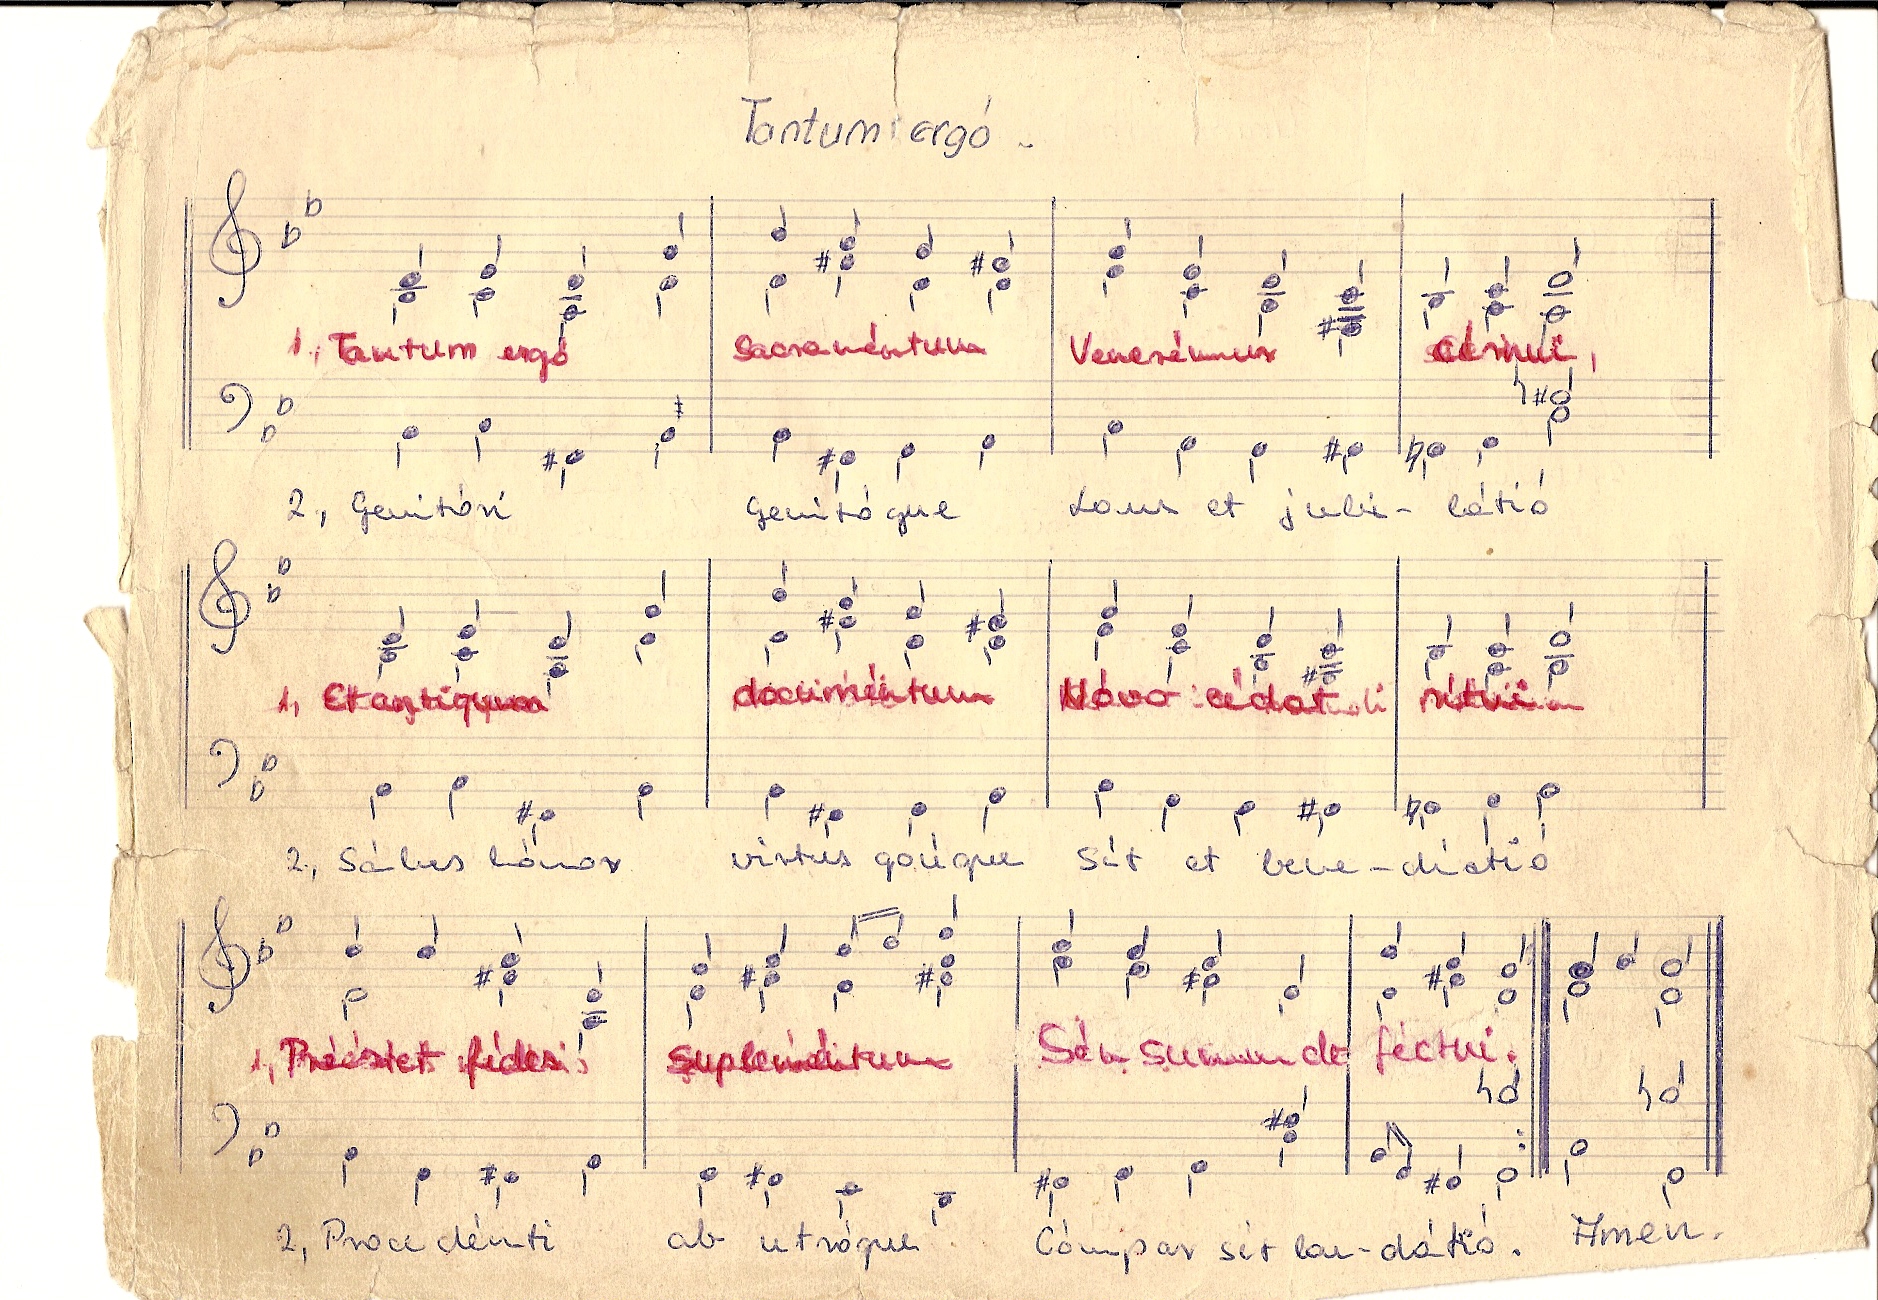 Tantum ergó.
1., Tantum ergó Sacraméntum Venerémur cérnui,
2., Genitóri Genitóque Laus et jubi- látió
1, Et antiquum documéntum Nóvo cédat ritui
2, Sálus hónor virtus qóuque Sit et bene-dictió
1, Préstet fides supleméntum Sénsuum de féctui.
2, Procedénti ab utróque Cómpar sit lau-dátió. Amen.